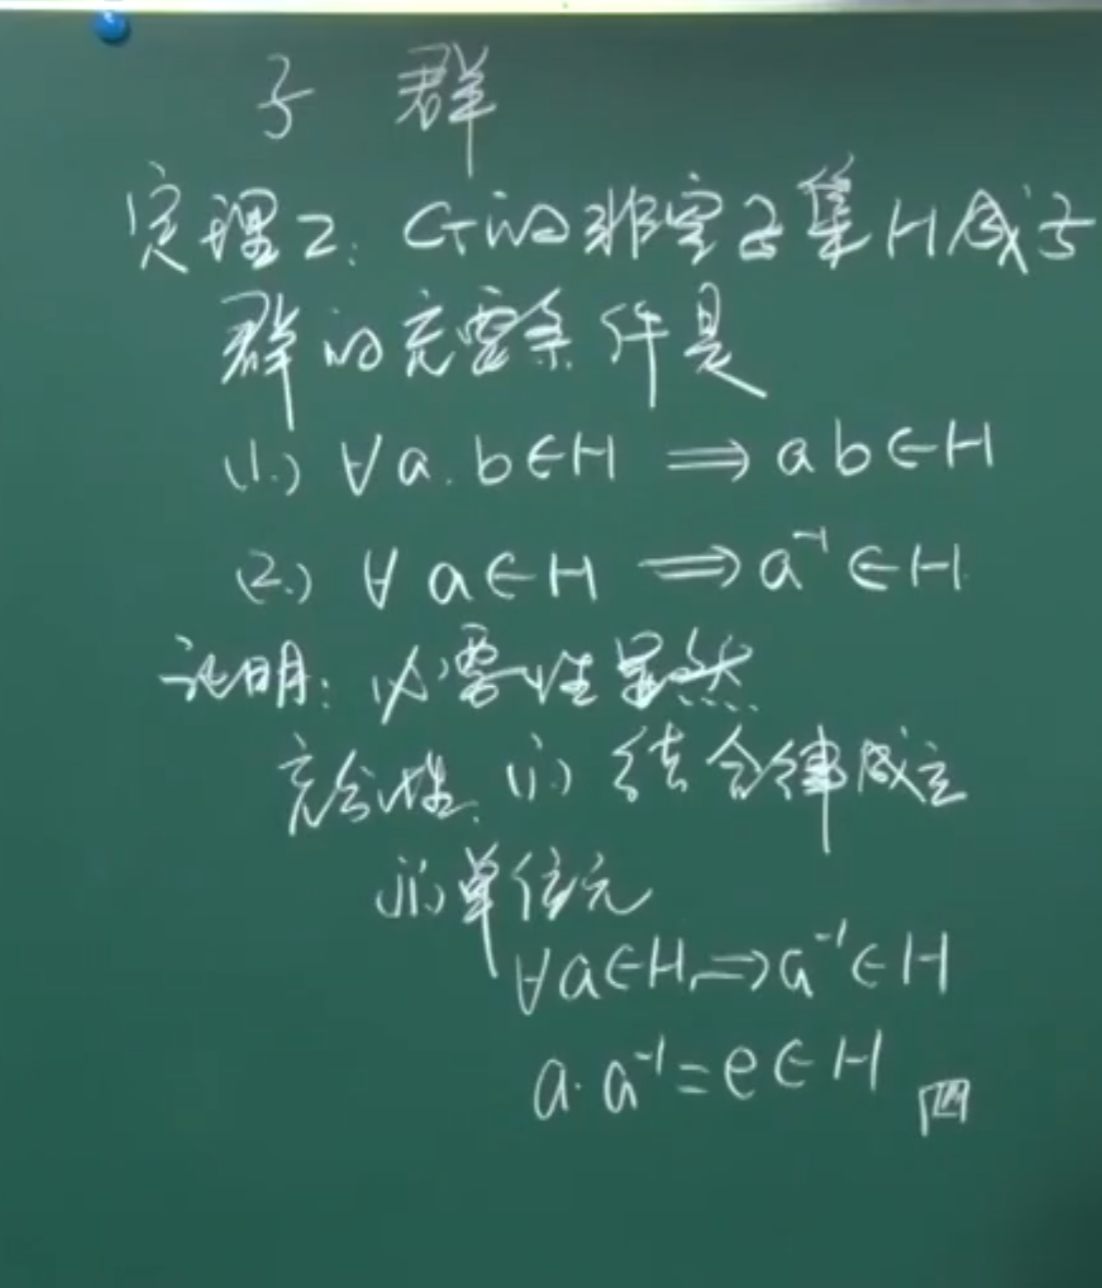 子 群
定理2: G的非空子集H成子
群的充要条件是
(1.) ∀a.b∈H ⟹ ab∈H
(2.) ∀ a∈H ⟹ a⁻¹∈H
证明: 必要性显然
充分性. (i.) 结合律成立
(ii) 单位元
∀a∈H, ⟹a⁻¹∈H
a·a⁻¹=e∈H